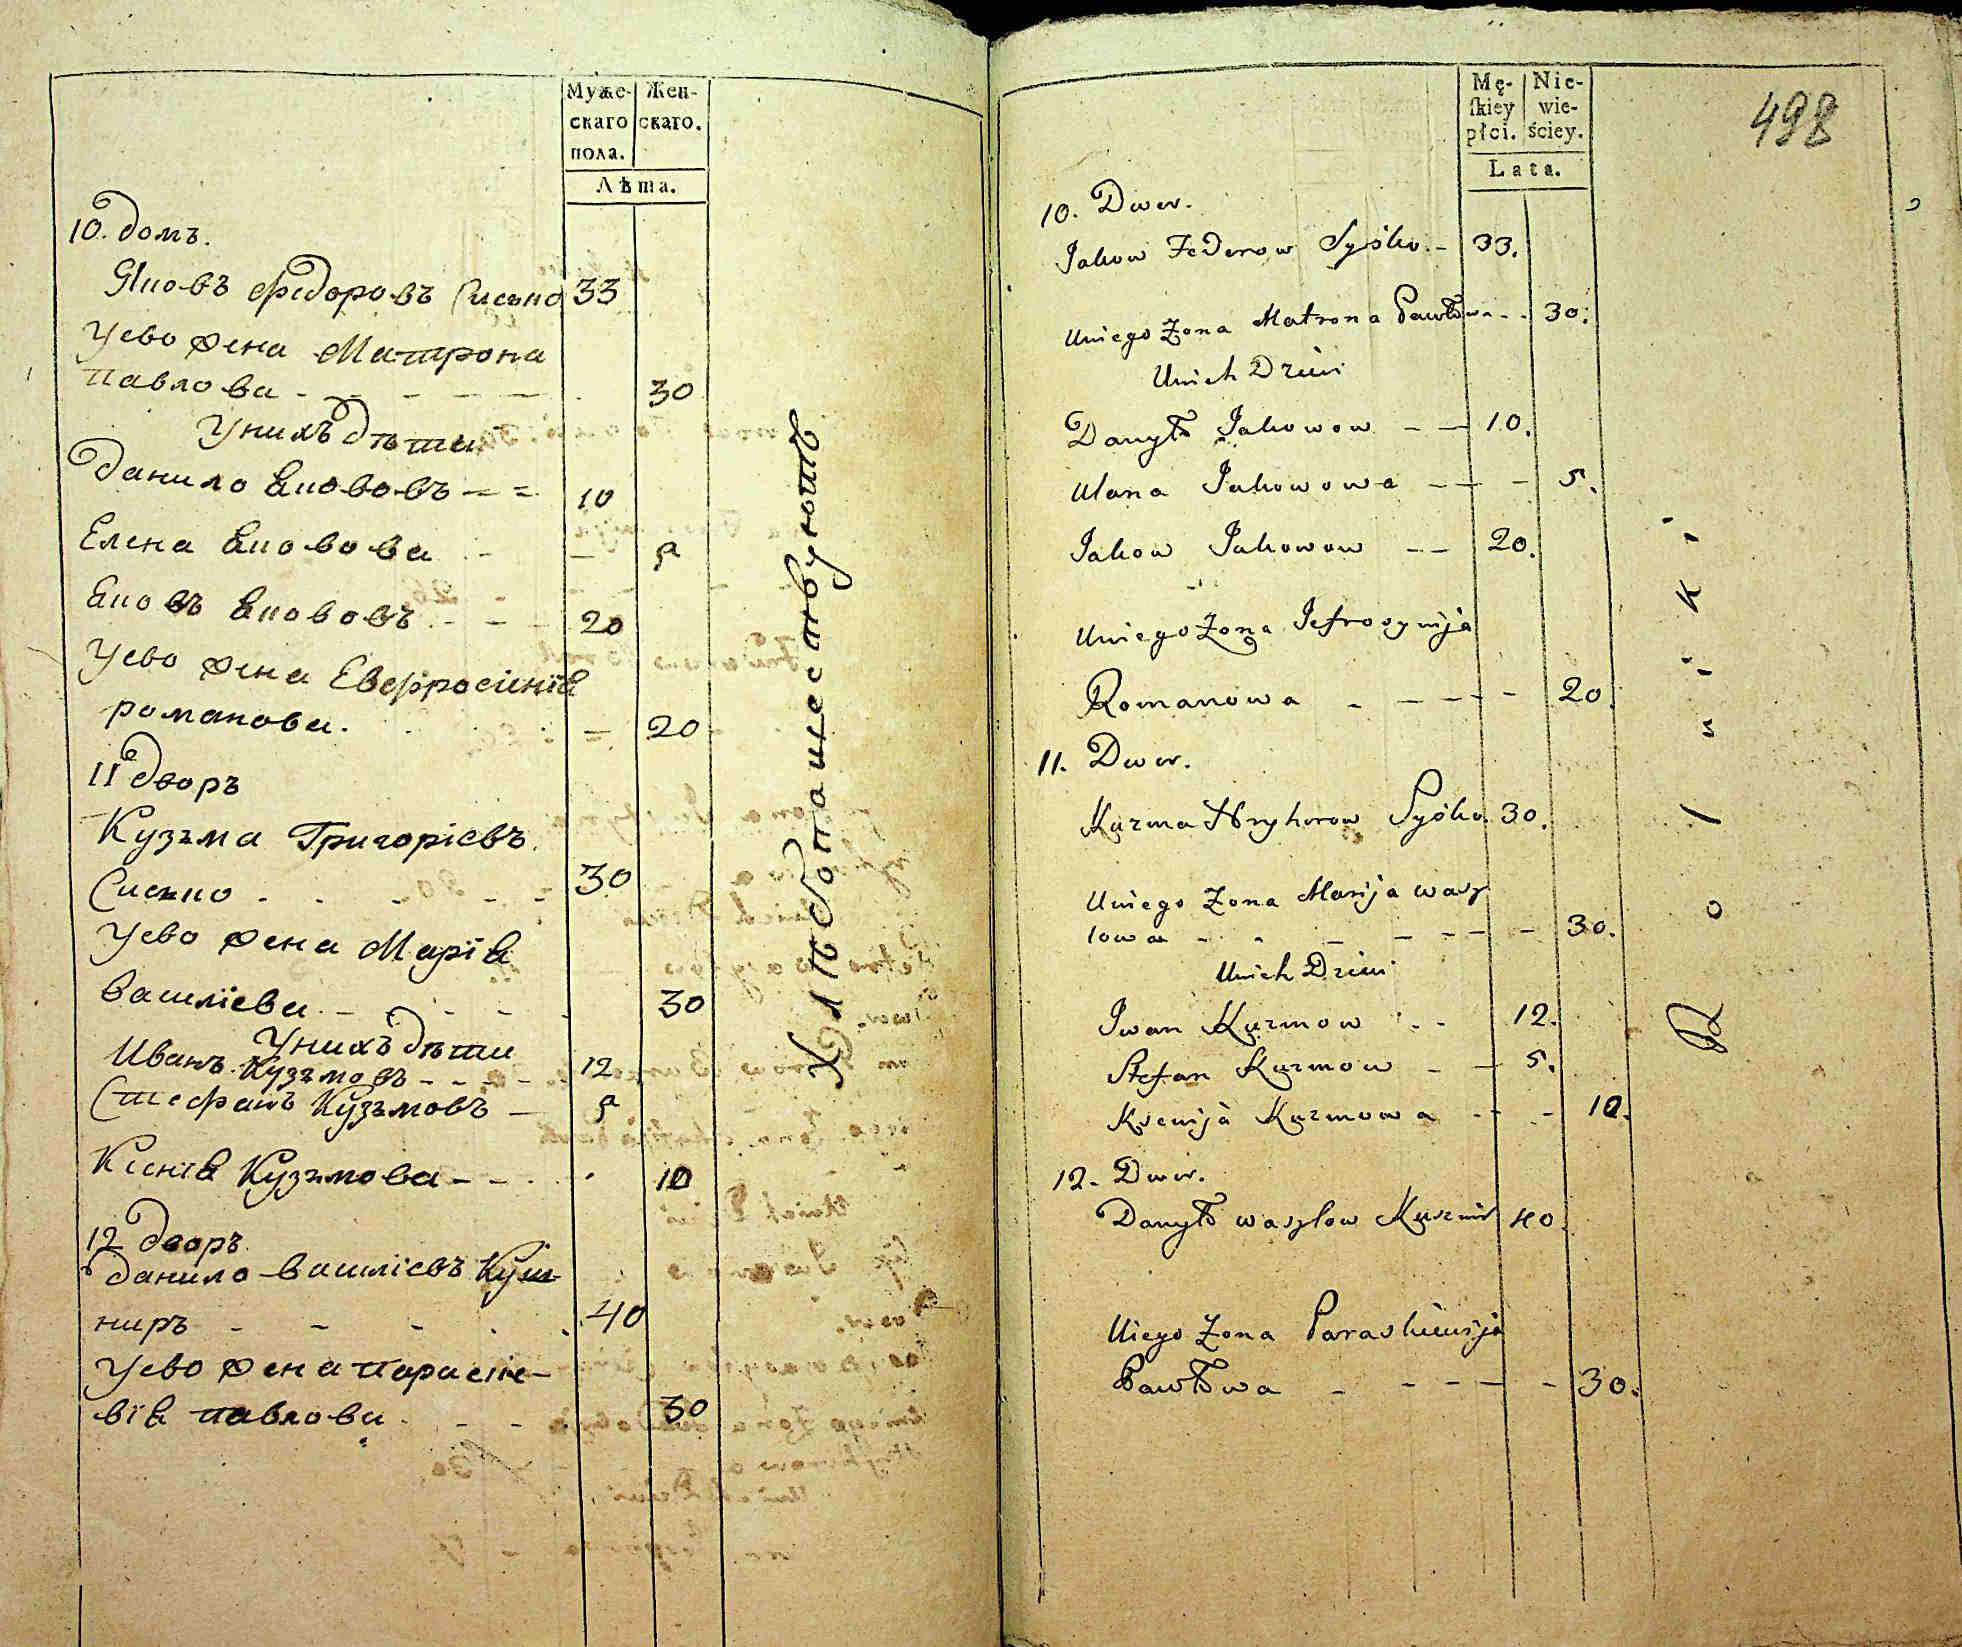 Муже-
скаго
пола.
Жен-
скаго.
Лѣта.
10. домъ.
Яковъ Федоровъ Сисько 33
Уево жена Матрона
павлова - - - - - 30
Унихъ дѣти
Данило Якововъ - - 10
Елена Яковова - - 5
Яковъ Якововъ - - - 20
Уево жена Евфросинія
романова. - 20
11 дворъ
Кузьма Григоріевъ
Сисько - - - - - 30
Уево жена Марія
василіева - - - - - 30
Унихъ дѣти
Иванъ Кузьмовъ - - - - 12
Стефанъ Кузьмовъ - 5
Ксенія Кузьмова - - - 10
12 дворъ
Данило василіевъ Куш-
ниръ - - - - - 40
Уево жена параске-
вія павлова - - - 30
Хлѣбопашествуютъ
Mę-
ſkiey
płci.
Nie-
wie-
ściey.
Lata.
498
10. Dwor.
Jakow Fedorow Syśko - 33.
Uniego Żona Matrona Pawłowa - - 30.
Unich Dzieci
Danyło Jakowow - - 10.
Ulana Jakowowa - - - 5.
Jakow Jakowow - - 20.
Uniego Żona Jefrosynija
Romanowa - - - - - 20.
11. Dwor.
Kuzma Hryhorow Syśko. 30.
Uniego Żona Marija wasy
lowa - - - - - - - 30.
Unich Dzieci
Iwan Kuzmow - - 12.
Stefan Kuzmow - - 5.
Ksenija Kuzmowa - - - 10.
12. Dwor.
Danyło wasylow Kusznir 40.
Uiego Żona Paraskiewija
Pawłowa - - - - - - 30.
Rolniki